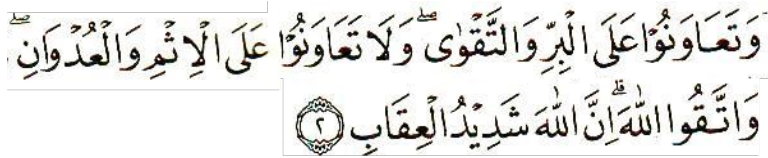 وَتَعَاوَنُوْا عَلَى الْبِرِّ وَالتَّقْوٰىۖ وَلَا تَعَاوَنُوْا عَلَى الْاِثْمِ وَالْعُدْوَانِۖ
وَاتَّقُوا اللّٰهَ ۗاِنَّ اللّٰهَ شَدِيْدُ الْعِقَابِ ٢